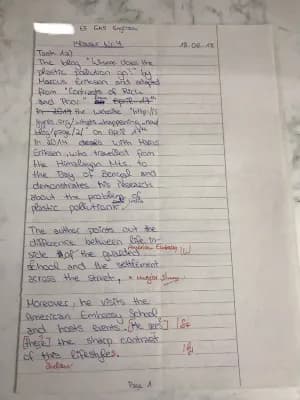 E5 GK5 English
Klausur Nr. 4 18.06.18
Task 1a)
The blog "Where does the
plastic pollution go?" by
Marcus Eriksen and adapted
from "Contrasts of Rich
and Poor" April 17th
in 2014 the website "http://5
gyres.org/whats-happening-now/
blog/page/2/" on April 17th
in 2014 deals with Marcus
Eriksen, who travelled from
the Himalayan Mts. to
the Bay of Bengal and
demonstrates his research
about the problem of
plastic pollution.
The author points out the
difference between life in-
side of the guarded American Embassy
school and the settlement
across the street.
Moreover, he visits the
American Embassy School
and hosts events. [He sees]
[there] the sharp contrast
of this lifestyles.
Indian
Page 1